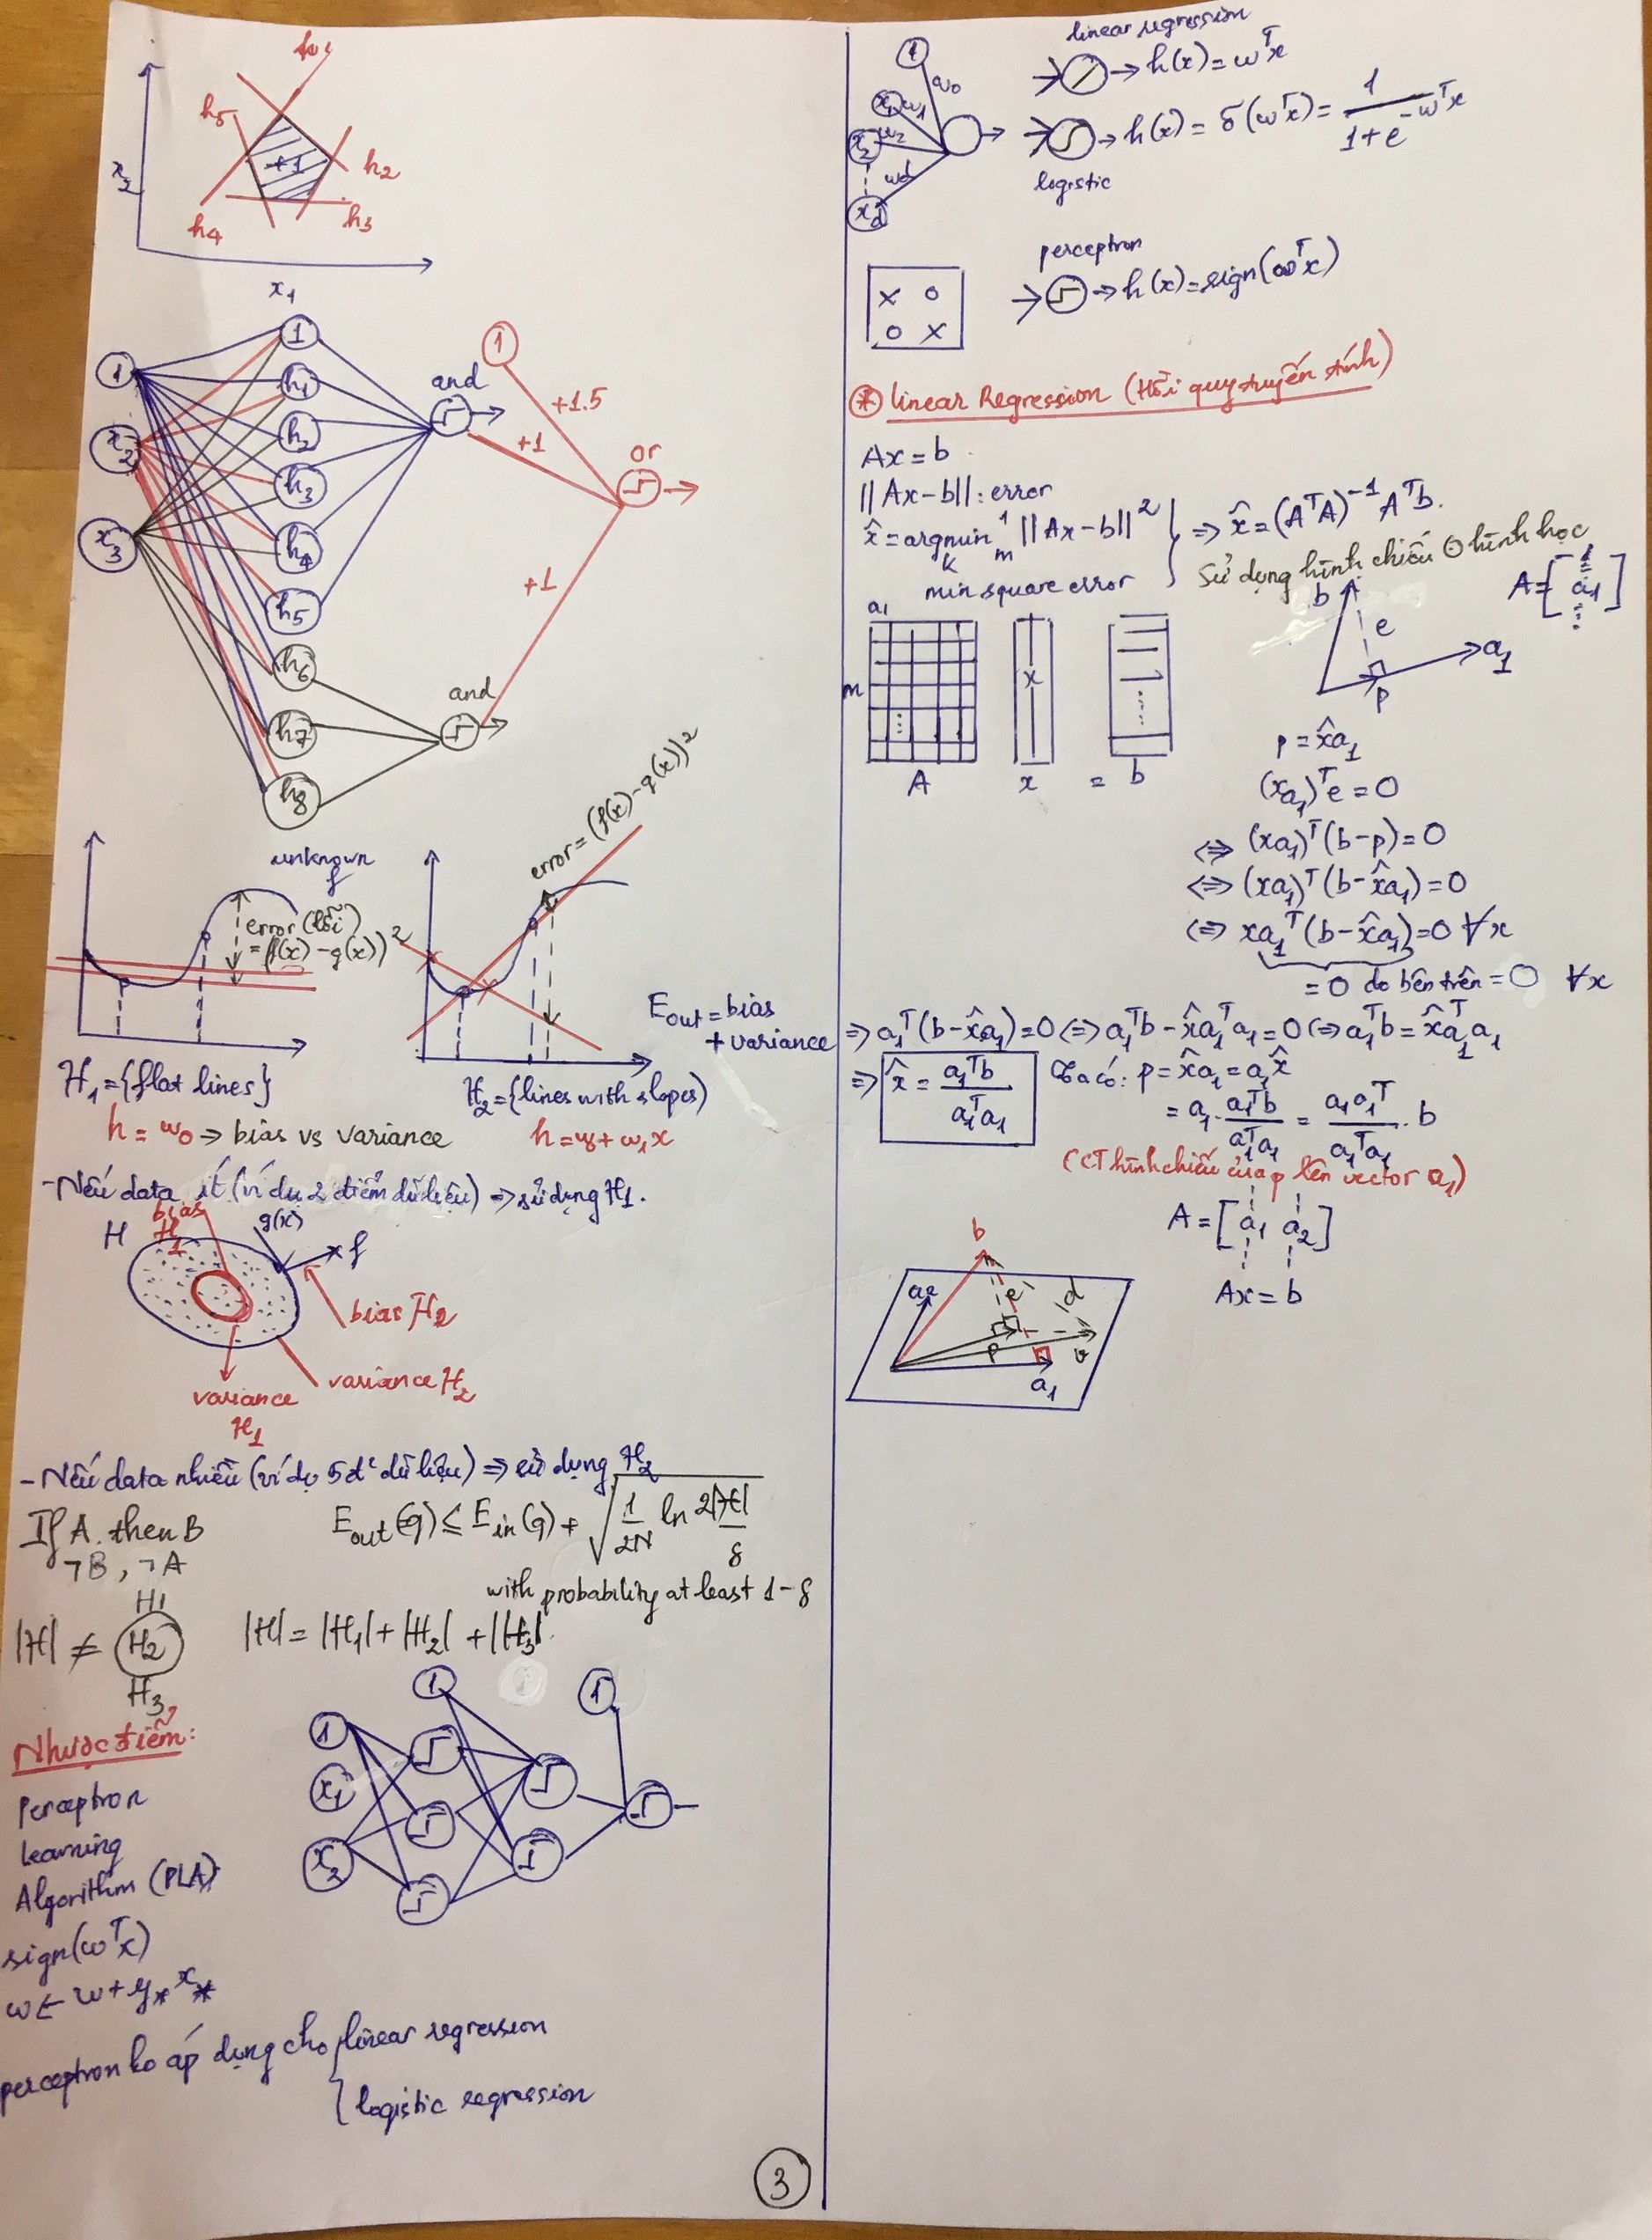 h1
h5
+1
h2
h3
h4
x2
x1
1
1
h1
h2
h3
h4
h5
h6
h7
h8
x2
x3
and
and
1
+1.5
+1
+1
or
unknown
f
error (lỗi)
= (f(x) - g(x))²
error = (f(x) - g(x))²
Eout = bias
+ variance
H1 = {flat lines}
H2 = {lines with slopes)
h = w0 ⇒ bias vs variance
- Nếu data ít (ví dụ 2 điểm dữ liệu) ⇒ sử dụng H1.
H
bias
H1
g(x)
f
bias H2
variance H2
variance
H1
- Nếu data nhiều (ví dụ 5 đ² dữ liệu) ⇒ sử dụng H2
If A then B
¬B, ¬A
Eout(g) ≤ Ein(g) + √(1/2N ln 2|H|/δ)
with probability at least 1-δ
H1
|H| ≠ H2
H3
|H| = |H1| + |H2| + |H3|
Nhược điểm:
Perceptron
Learning
Algorithm (PLA)
sign(wᵀx)
w ← w + y* x*
perceptron ko áp dụng cho { linear regression
logistic regression
1
x1
x2
1
1
3
1
x1
x2
xd
w0
w1
w2
wd
linear regression
→ h(x) = wᵀx
→ h(x) = δ(wᵀx) = 1/(1+e^-wᵀx)
logistic
perceptron
→ h(x) = sign(wᵀx)
x o
o x
* linear Regression (Hồi quy tuyến tính)
Ax = b
||Ax-b|| : error
x̂ = argmin 1/m ||Ax-b||² ⇒ x̂ = (AᵀA)⁻¹Aᵀb.
min square error
Sử dụng hình chiếu hình học
a1
m
A x = b
x
b
e
p
a1
A = [a1]
p = x̂a1
(xa1)ᵀe = 0
⇔ (xa1)ᵀ(b-p) = 0
⇔ (xa1)ᵀ(b-x̂a1) = 0
⇔ xa1ᵀ(b-x̂a1) = 0 ∀x
= 0 do bên trên = 0 ∀x
⇒ a1ᵀ(b-x̂a1) = 0 ⇔ a1ᵀb - x̂a1ᵀa1 = 0 ⇔ a1ᵀb = x̂a1ᵀa1
⇒ x̂ = a1ᵀb / a1ᵀa1
Ta có: p = x̂a1 = a1x̂
= a1 · a1ᵀb / a1ᵀa1 = a1a1ᵀ / a1ᵀa1 · b
(CT hình chiếu của p lên vector a1)
A = [a1 a2]
Ax = b
b
a2
e
d
p
a1